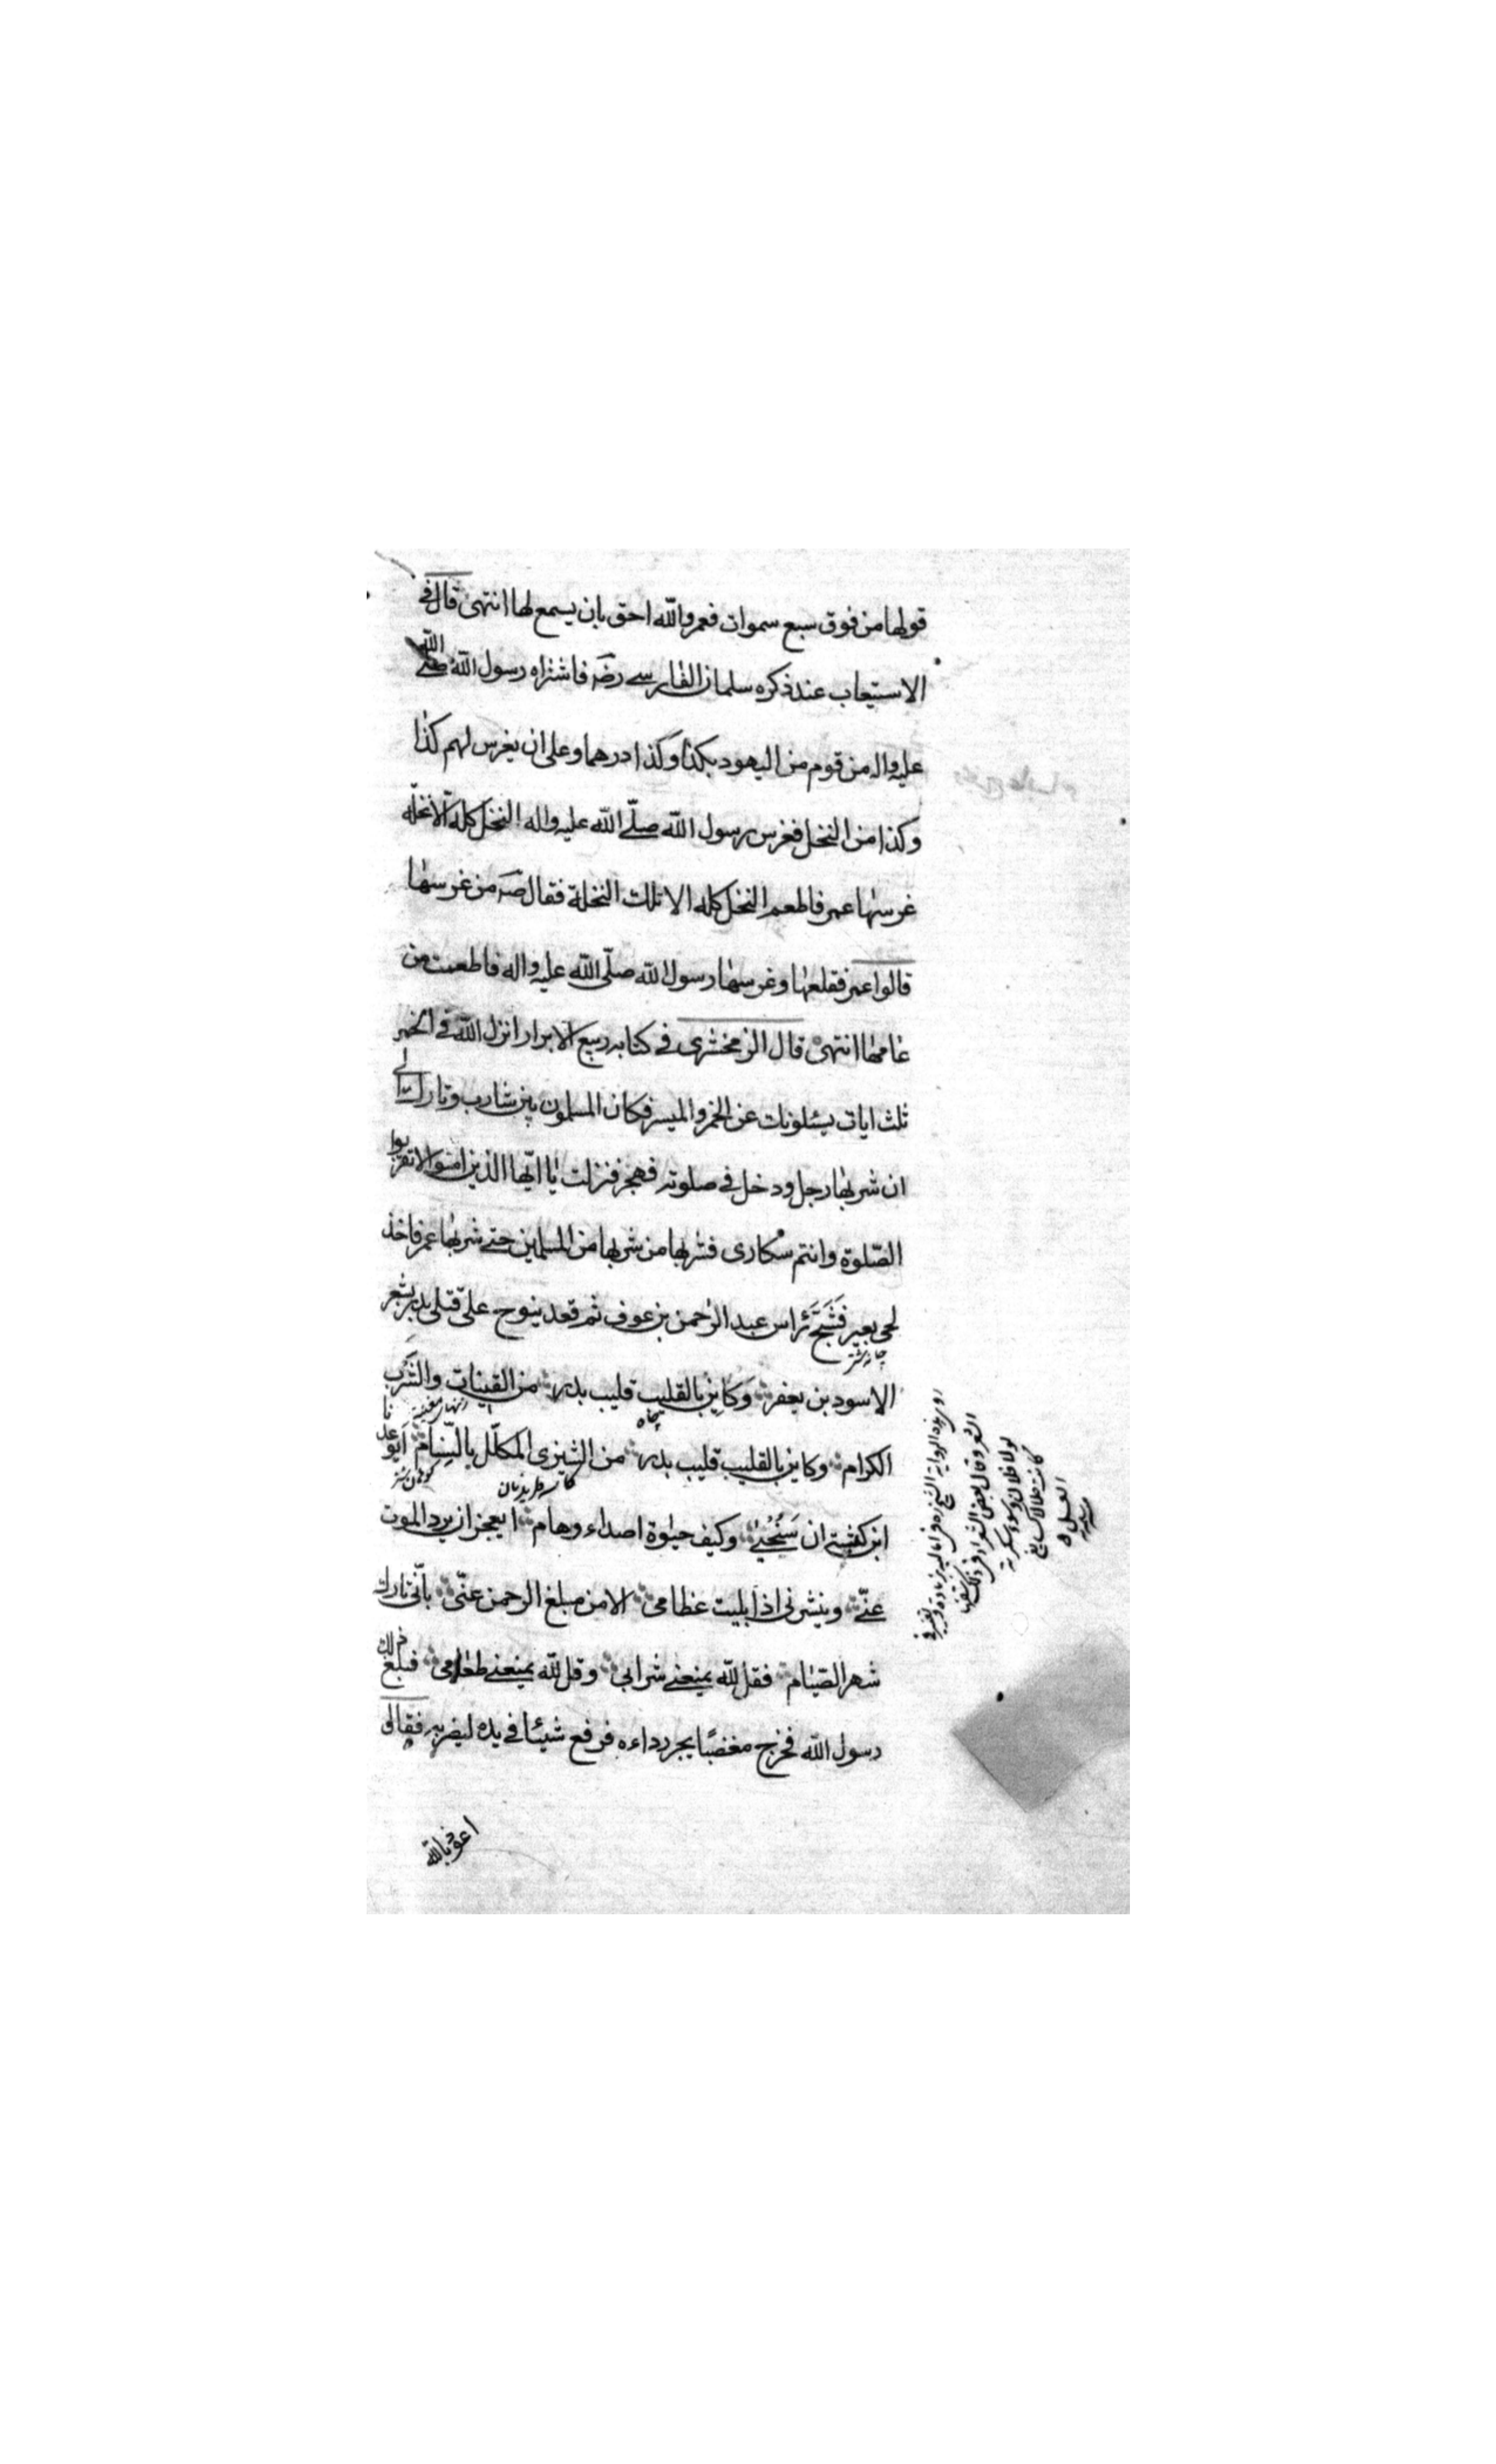 قولها من فوق سبع سموات فعمر والله احق بان يسمع لها انتهى قال فى
الاستيعاب عند ذكره سلمان الفارسے رضه فاشتراه رسول الله صلّے الله
عليه واله من قوم من اليهود بكذا وكذا درهما وعلى ان يغرس لهم كذا
وكذا من النخل فغرس رسول الله صلّے الله عليه واله النخل كله الّا نخلة
غرسها عمر فاطعم النخل كله الا تلك النخلة فقال صه من غرسها
قالوا عمر فقلعها وغرسها رسول الله صلّى الله عليه واله فاطعمت من
عامها انتهى قال الزمخشرى فے كتابه ربيع الابرار انزل الله فے الخمر
ثلث ايات يسئلونك عن الخمر والميسر فكان المسلمون بين شارب وتارك الے
ان شربها رجل ودخل فے صلوته فهجر فنزلت يا ايّها الذين امنوا لا تقربوا
الصّلوة وانتم سكارى فشربها من شربها من المسلمين حتے شربها عمر فاخذ
لحى بعير فَشَجَّ رأس عبد الرّحمن بن عوف ثم قعد ينوح على قتلى بدر بشعر
الاسود بن يعفر وَكاين بالقليب قليب بدر من القينات والشَرب
الكرام وكاين بالقليب قليب بدر من الشيزى المكلّل بالسّنام أيوعدنا
ابن كبشة ان سَنُحْيٰے وكيف حيٰوة اصداء وهام ايعجز ان يرد الموت
عنّے وينشرنى اذا بليت عظامى الا من مبلغ الرحمن عنّى بانّى تارك
شهر الصّيام فقل لله يمنعنے شرابى وقل لله يمنعنے طعامى فبلغ ذلك
رسول الله فخرج مغضبًا يجر رداءه فرفع شيئا فى يده ليضربه فقال
اعوذ بالله